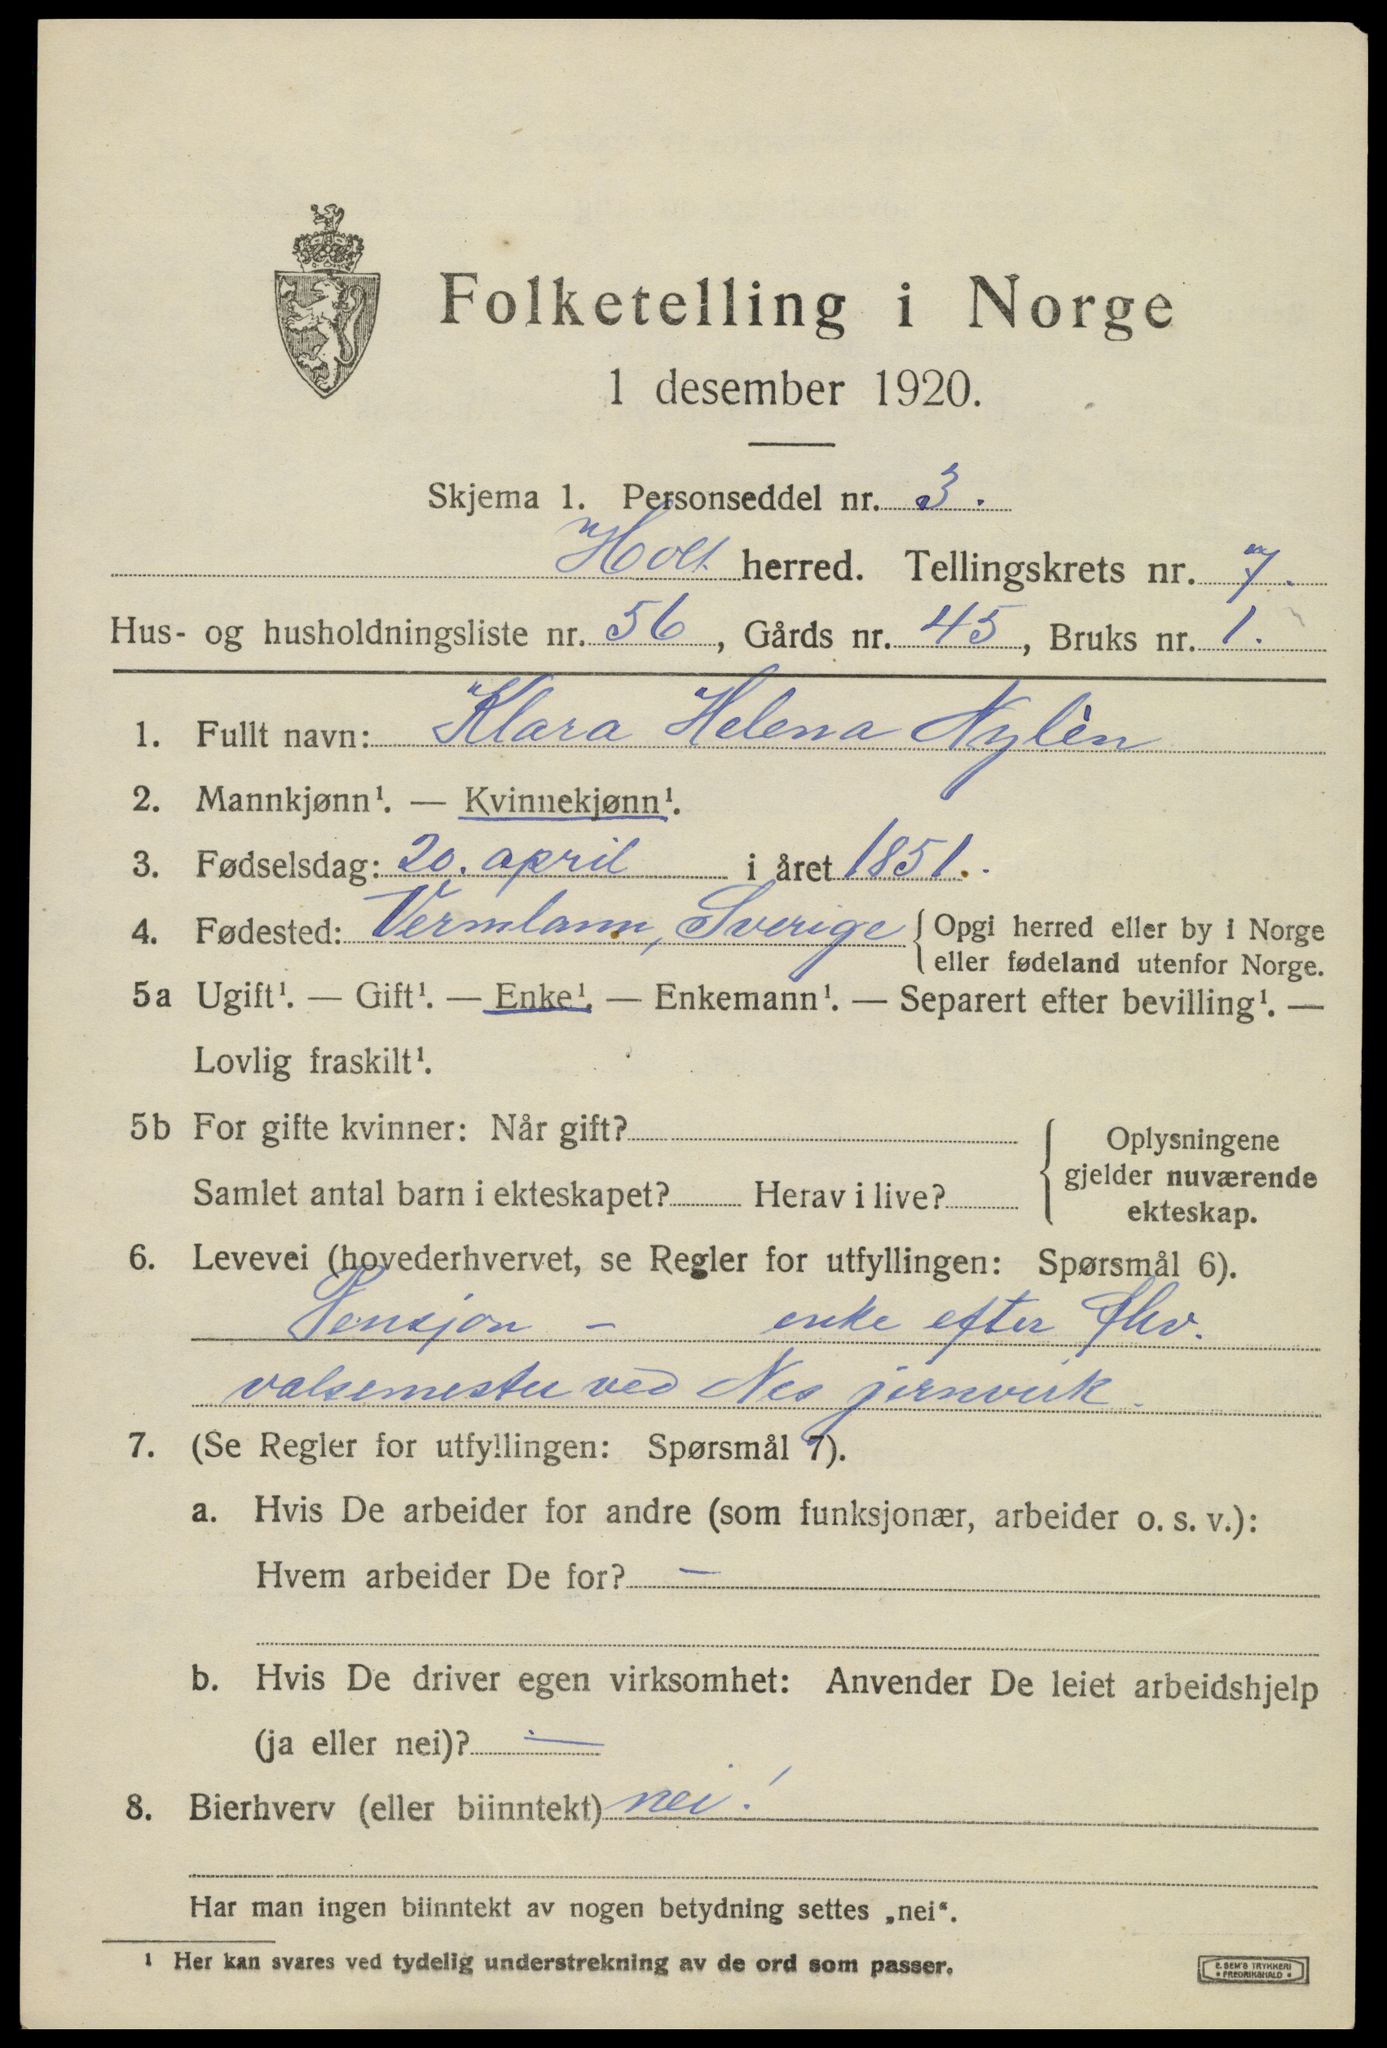 Folketelling i Norge
1 desember 1920.
Skjema 1. Personseddel nr. 3.
Holt herred. Tellingskrets nr. 7.
Hus- og husholdningsliste nr. 56, Gårds nr. 45, Bruks nr. 1.
1. Fullt navn: Klara Helena Nylèn
2. Mannkjønn¹. — Kvinnekjønn¹.
3. Fødselsdag: 20. april i året 1851.
4. Fødested: Vermlann, Sverige { Opgi herred eller by i Norge
eller fødeland utenfor Norge.
5a Ugift¹. — Gift¹. — Enke¹. — Enkemann¹. — Separert efter bevilling¹. —
Lovlig fraskilt¹.
5b For gifte kvinner: Når gift?
Samlet antal barn i ekteskapet? Herav i live?
{ Oplysningene
gjelder nuværende
ekteskap.
6. Levevei (hovederhvervet, se Regler for utfyllingen: Spørsmål 6).
Pensjon – enke efter fhv.
valsemester ved Nes jernverk.
7. (Se Regler for utfyllingen: Spørsmål 7).
a. Hvis De arbeider for andre (som funksjonær, arbeider o. s. v.):
Hvem arbeider De for? —
b. Hvis De driver egen virksomhet: Anvender De leiet arbeidshjelp
(ja eller nei)? —
8. Bierhverv (eller biinntekt) nei!
Har man ingen biinntekt av nogen betydning settes „nei“.
¹ Her kan svares ved tydelig understrekning av de ord som passer.
E. SEM'S TRYKKERI
• FREDRIKSHALD •